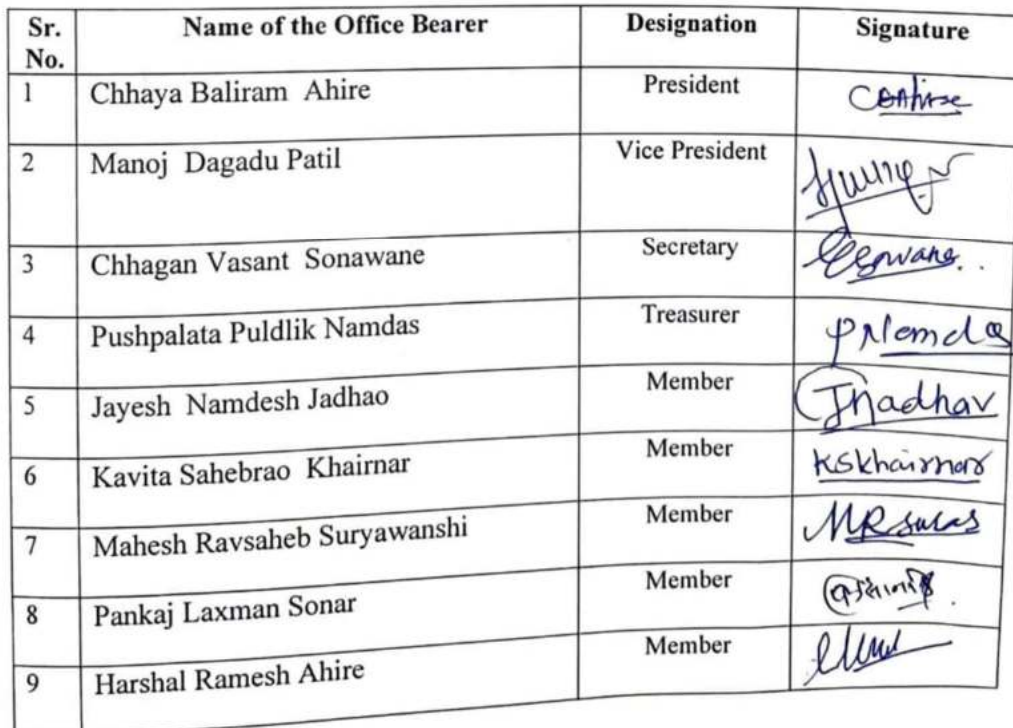 Sr. No. Name of the Office Bearer Designation Signature
1 Chhaya Baliram Ahire President
2 Manoj Dagadu Patil Vice President
3 Chhagan Vasant Sonawane Secretary
4 Pushpalata Puldlik Namdas Treasurer
5 Jayesh Namdesh Jadhao Member Jnadhav
6 Kavita Sahebrao Khairnar Member KSKhairnar
7 Mahesh Ravsaheb Suryawanshi Member
8 Pankaj Laxman Sonar Member
9 Harshal Ramesh Ahire Member